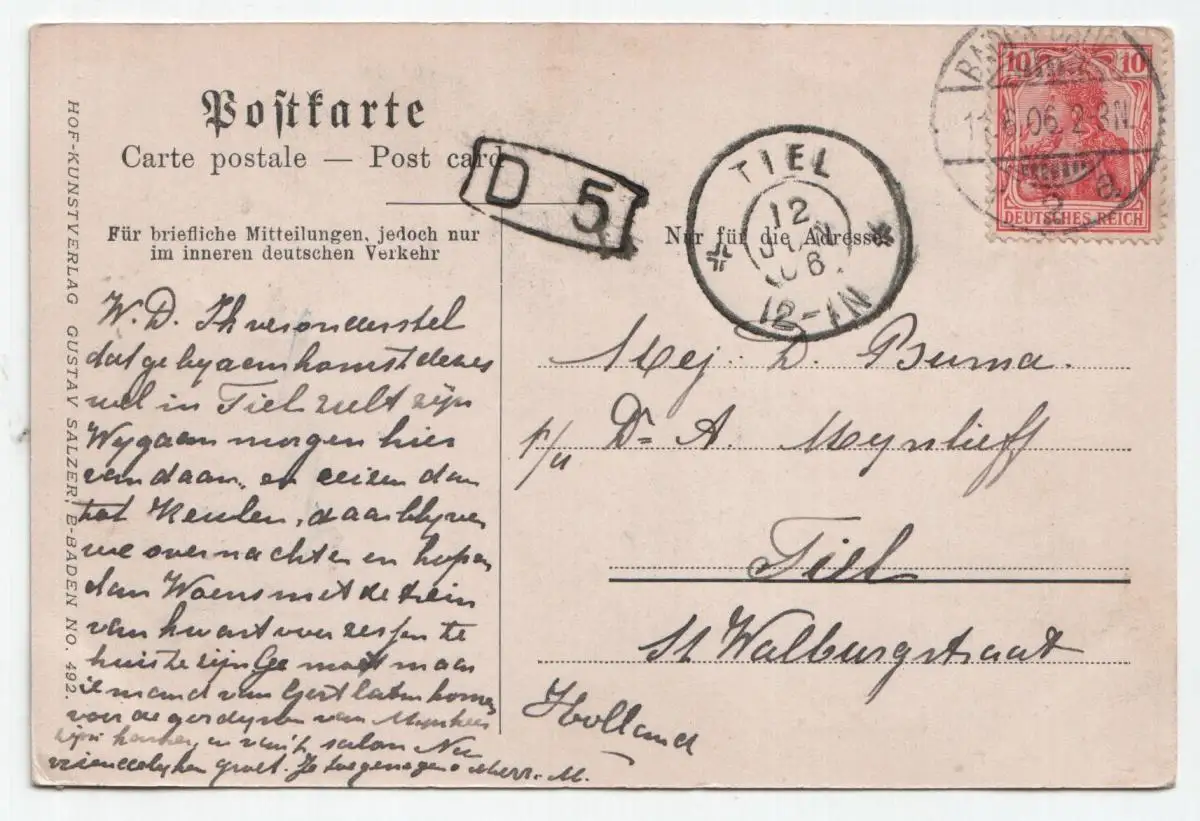 Postkarte
Carte postale — Post card
Für briefliche Mitteilungen, jedoch nur
im inneren deutschen Verkehr
Nur für die Adresse
HOF-KUNSTVERLAG GUSTAV SALZER, B-BADEN NO. 492.
D 5
TIEL
12
JUN
06
12-1N
BADEN
6.06.2-3N.
10 10
DEUTSCHES REICH
W. D. Ik veronderstel
dat ge bij aankomst dezes
wel in Tiel zult zijn
Wy gaan morgen hier
vandaan, en reizen dan
tot Keulen, daar blyven
we overnachten en hopen
dan Woensmet de trein
van kwart voor zessen te
huis te zijn Ge moet maar
iemand van Gert laten komen
voor de gordynen van Mynheer
zijn kamer, en van't salon Nu
vriendelyken groet. Je toegenegen Mevr. M.
Mej. D. Buma.
p/a Dr A Meynlieff
Tiel
St Walburgstraat
Holland